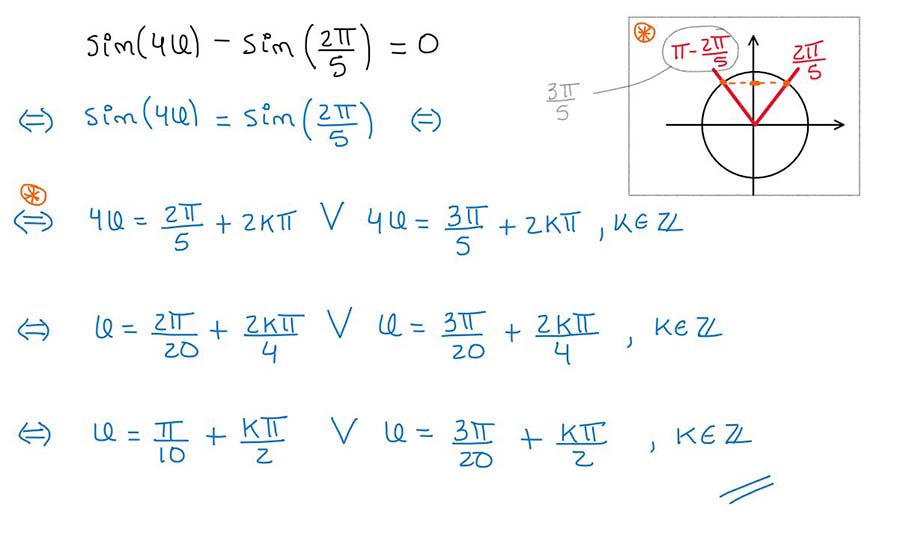 sin(4φ) - sin(2π/5) = 0
⇔ sin(4φ) = sin(2π/5) ⇔
⊛
⇔ 4φ = 2π/5 + 2kπ ∨ 4φ = 3π/5 + 2kπ , k∈ℤ
⇔ φ = 2π/20 + 2kπ/4 ∨ φ = 3π/20 + 2kπ/4 , k∈ℤ
⇔ φ = π/10 + kπ/2 ∨ φ = 3π/20 + kπ/2 , k∈ℤ
⊛
π - 2π/5
2π/5
3π/5